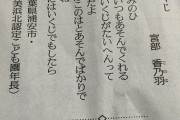 宮部 香乃羽
みのひ
いつもあそんでくれる
いくじがたいへんって
だよ
このはとあそんでばかりで
はいくじでもしたら
葉県浦安市・
美浜北認定こども園年長）